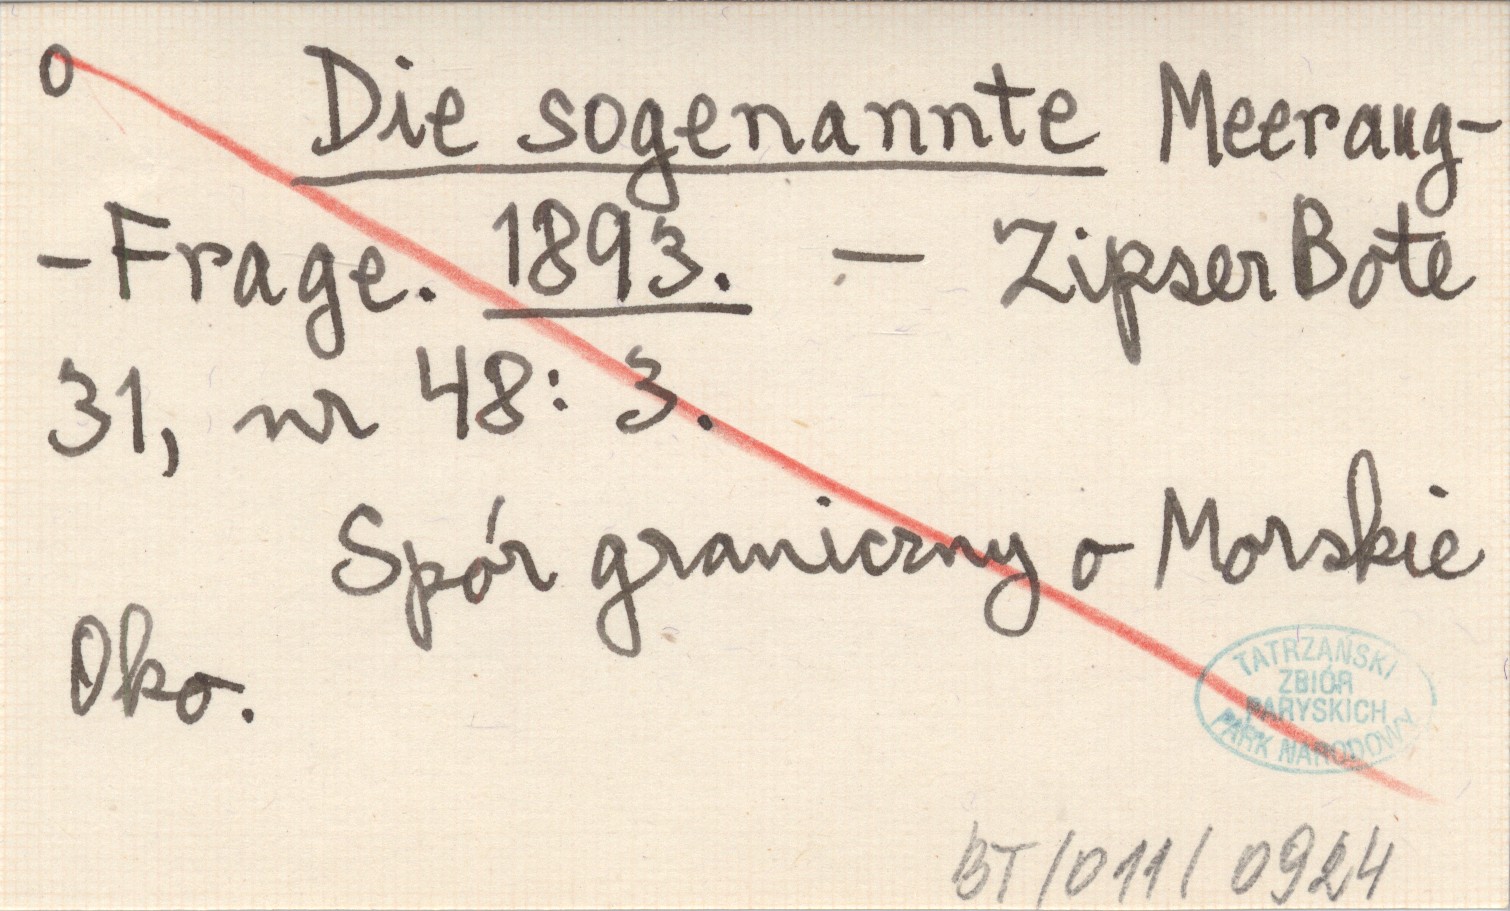 o Die sogenannte Meeraug-
-Frage. 1893. — Zipser Bote
31, nr 48: 3.
Spór graniczny o Morskie
Oko.
TATRZAŃSKI
ZBIÓR
PARYSKICH
PARK NARODOWY
BT/011/0924